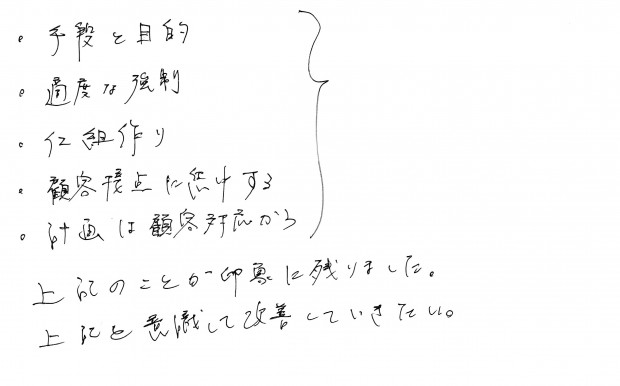 ・手段と目的
・適度な強制
・仕組作り
・顧客接点に集中する
・計画は顧客対応から
上記のことが印象に残りました。
上記を意識して改善していきたい。